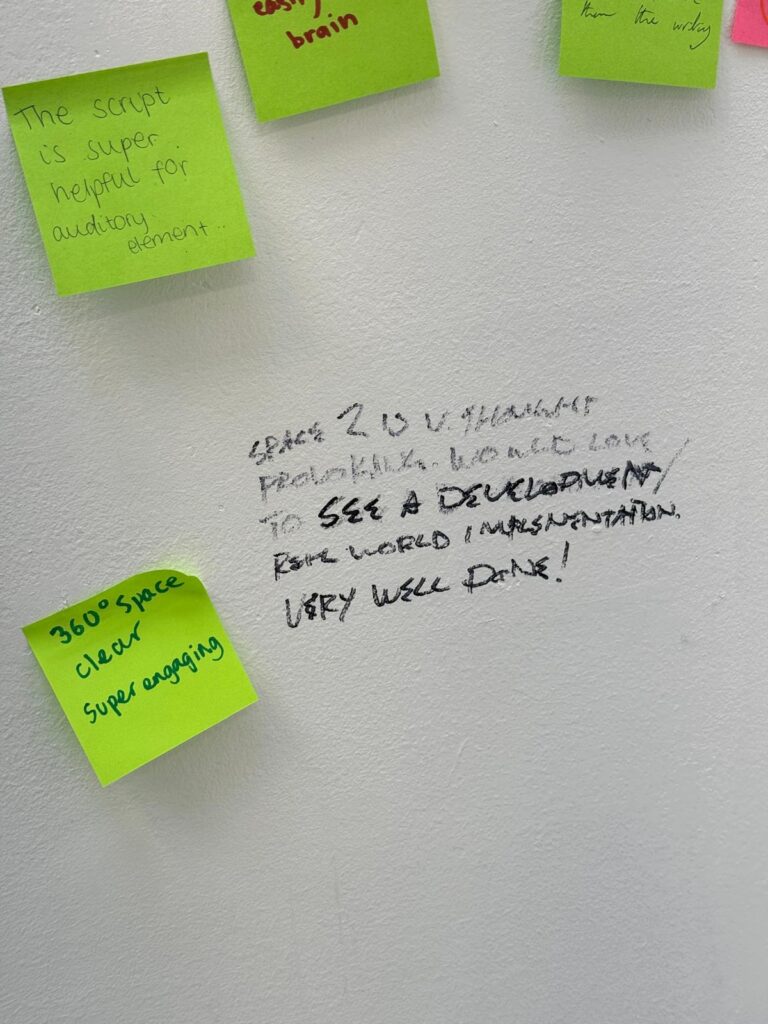 easily
brain
them the working
The script
is super
helpful for
auditory
element..
SPACE 2 IS V. THOUGHT
PROVOKING. WOULD LOVE
TO SEE A DEVELOPMENT/
REAL WORLD IMPLEMENTATION.
VERY WELL DONE!
360° Space
clear
super engaging